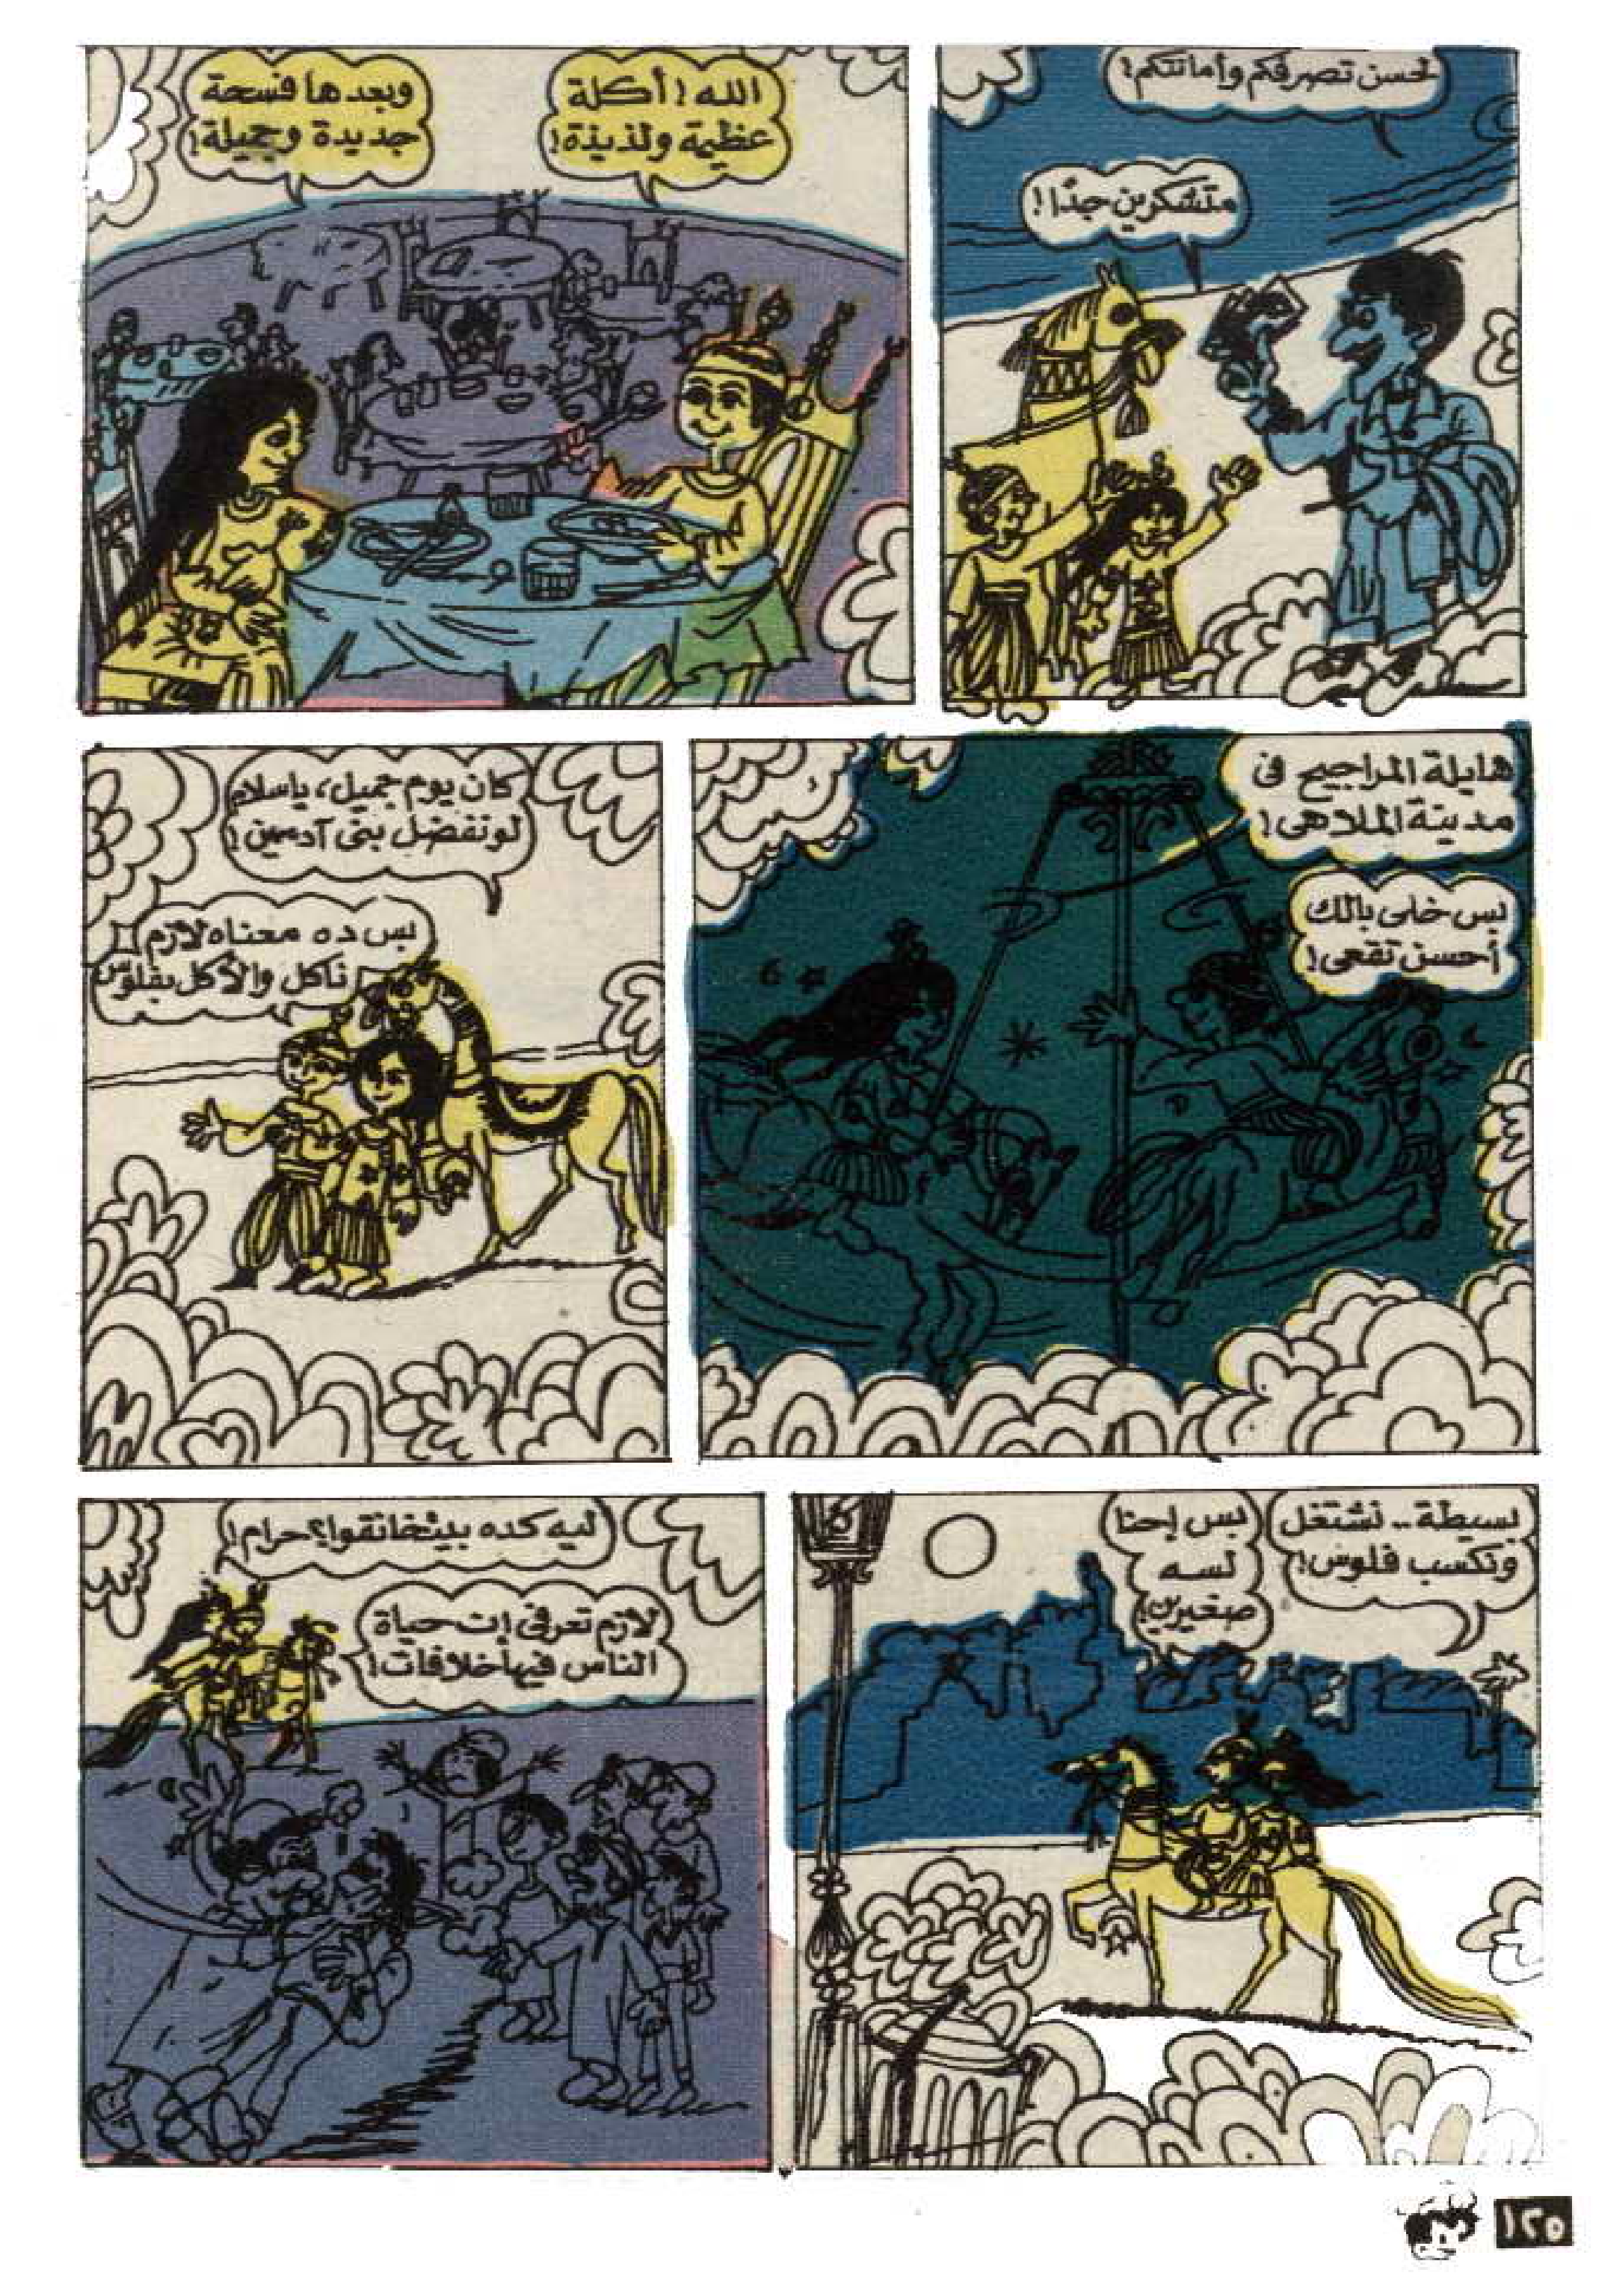 لحسن تصرفكم وأمانتكم!
متشكرين جدًا!
الله! أكلة
عظيمة ولذيذة!
وبعدها فسحة
جديدة وجميلة!
هايلة المراجيح فى
مدينة الملاهى!
بس خلى بالك
أحسن تقعى!
كان يوم جميل، ياسلام
لو نفضل بنى آدمين!
بس ده معناه لازم
ناكل والأكل بفلوس
بسيطة.. نشتغل
ونكسب فلوس!
بس إحنا
لسه
صغيرين!
ليه كده بيتخانقوا؟ حرام!
لازم تعرفى إن حياة
الناس فيها خلافات!
١٢٥